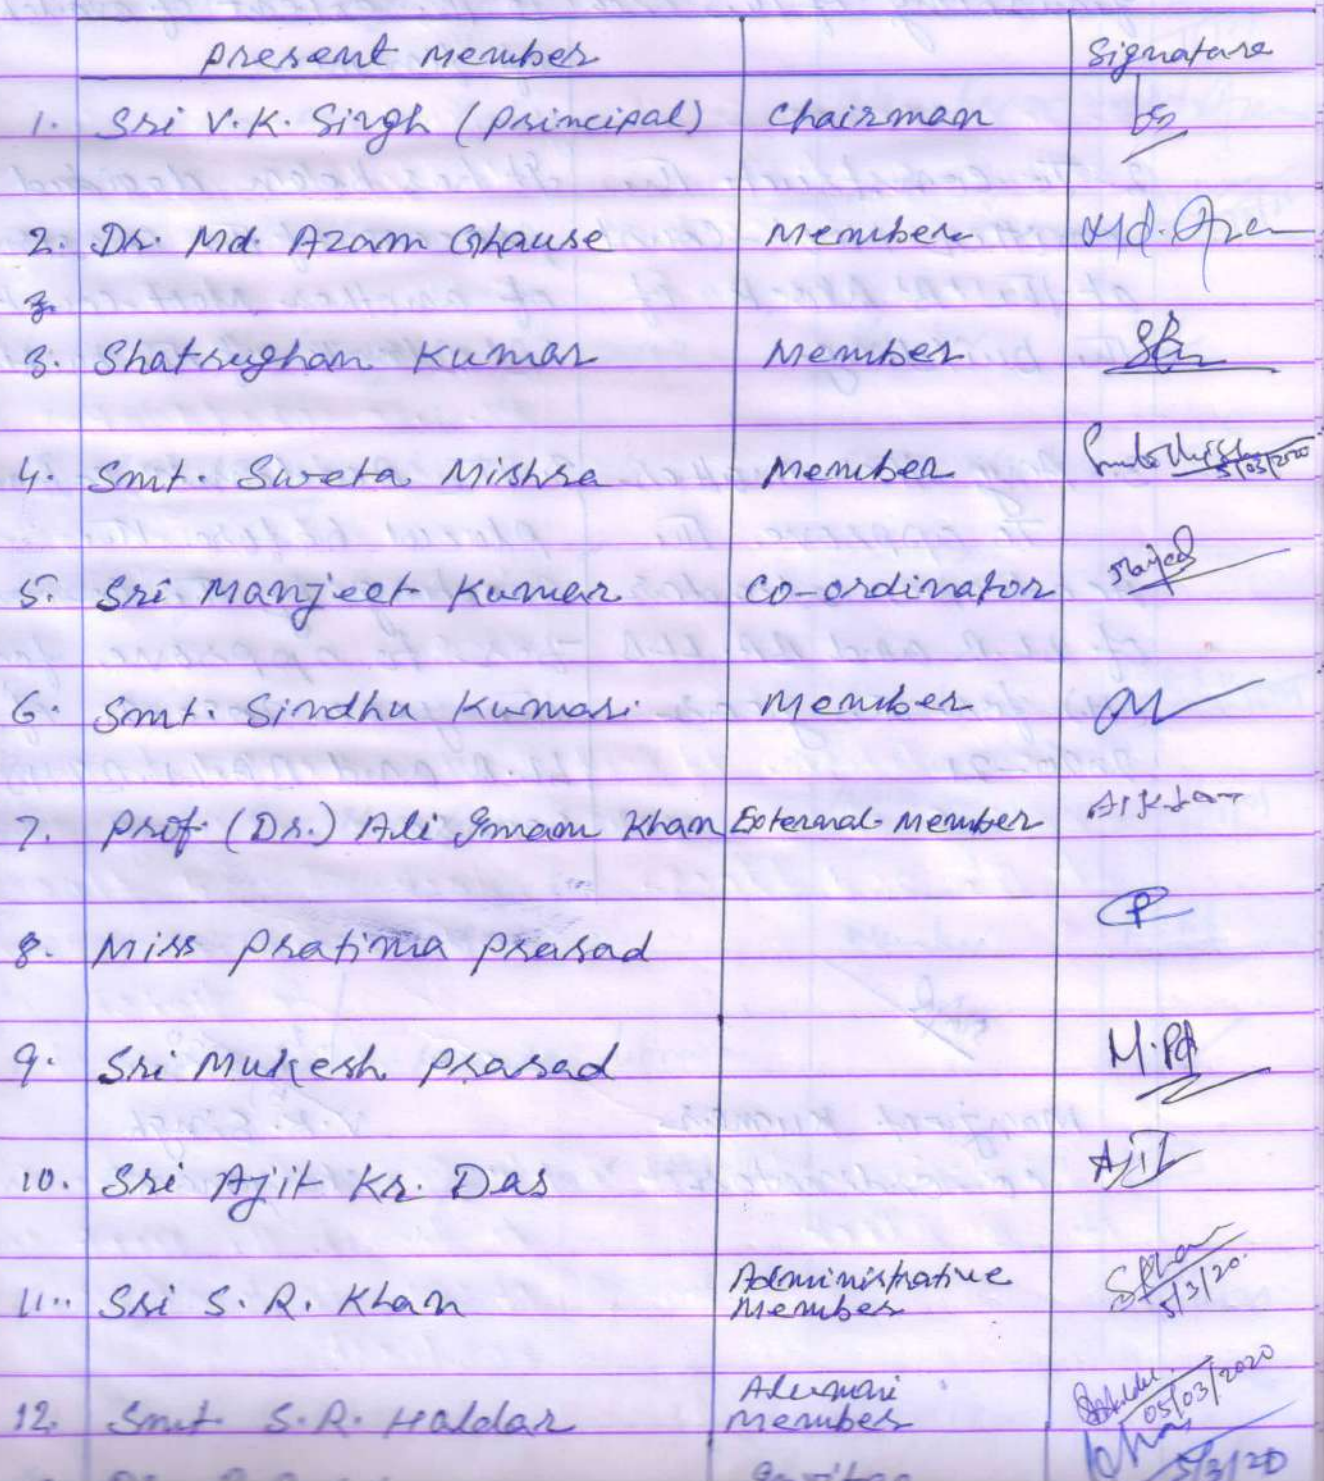 Present Member Signature
1. Sri V.K. Singh (Principal) Chairman
2. Dr. Md. Azam Ghause Member Md. Azam
3. Shatrughan Kumar Member
4. Smt. Sweta Mishra Member 5/03/2020
5. Sri Manjeet Kumar Co-ordinator
6. Smt. Sindhu Kumari Member
7. Prof. (Dr.) Ali Imam Khan External Member AIKhan
8. Miss Pratima Prasad P
9. Sri Mukesh Prasad M.Pd
10. Sri Ajit Kr. Das Ajit
11. Sri S.R. Khan Administrative
Member SRKhan 5/3/20
12. Smt S.R. Haldar Alumni
Member 05/03/2020
5/3/20